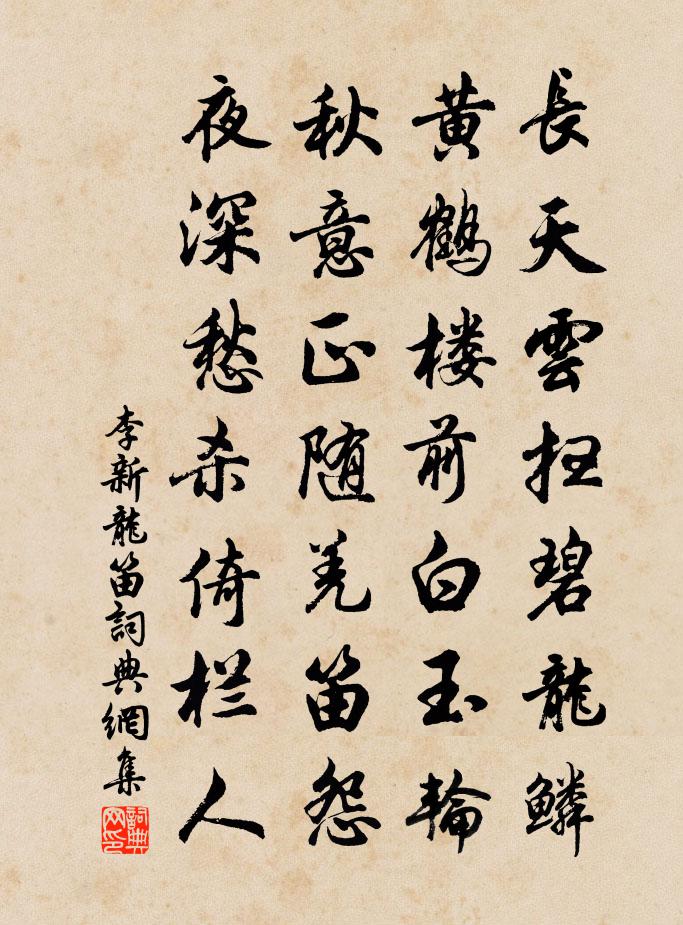 長天雲扫碧龍鱗
黄鶴楼前白玉輪
秋意正随羌笛怨
夜深愁杀倚栏人
李新龍笛詞典網集
詞典
网印